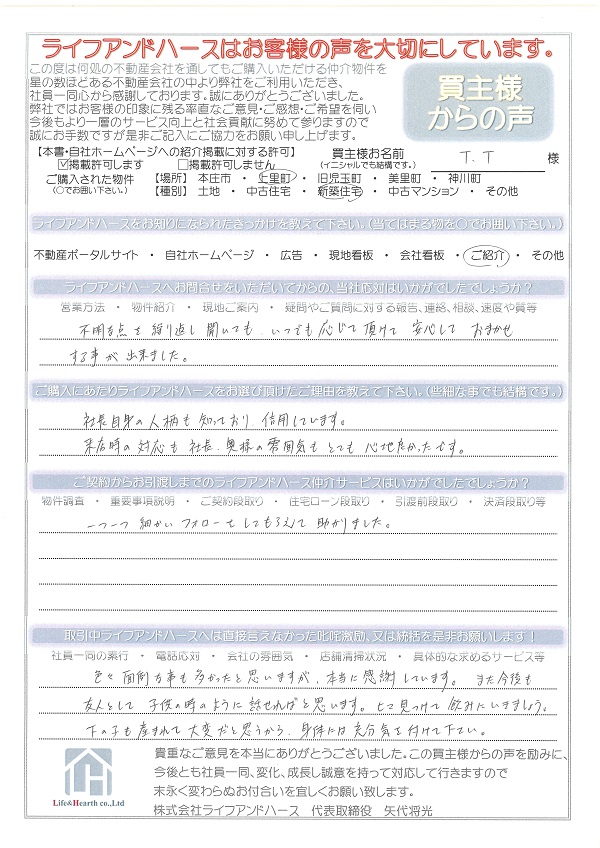 ライフアンドハースはお客様の声を大切にしています。
この度は何処の不動産会社を通してもご購入いただける仲介物件を
星の数ほどある不動産会社の中より弊社をご利用いただき、
社員一同心から感謝しております。誠にありがとうございました。
弊社ではお客様の印象に残る率直なご意見・ご感想・ご希望を伺い
今後もより一層のサービス向上と社会貢献に努めて参りますので
誠にお手数ですが是非ご記入にご協力をお願い申し上げます。
買主様
からの声
【本書・自社ホームページへの紹介掲載に対する許可】
☑掲載許可します □掲載許可しません
買主様お名前 T.T 様
(イニシャルでも結構です。)
ご購入された物件 【場所】 本庄市 ・ 上里町 ・ 旧児玉町 ・ 美里町 ・ 神川町
(〇でお囲い下さい。) 【種別】 土地 ・ 中古住宅 ・ 新築住宅 ・ 中古マンション ・ その他
ライフアンドハースをお知りになられたきっかけを教えて下さい。(当てはまる物を〇でお囲い下さい。)
不動産ポータルサイト ・ 自社ホームページ ・ 広告 ・ 現地看板 ・ 会社看板 ・ ご紹介 ・ その他
ライフアンドハースへお問合せをいただいてからの、当社応対はいかがでしたでしょうか?
営業方法 ・ 物件紹介 ・ 現地ご案内 ・ 疑問やご質問に対する報告、連絡、相談、速度や質等
不明な点を繰り返し聞いても、いつでも応じて頂けて安心しておまかせ
する事が出来ました。
ご購入にあたりライフアンドハースをお選び頂けたご理由を教えて下さい。(些細な事でも結構です。)
社長自身の人柄も知っており、信用しています。
来店時の対応も社長、奥様の雰囲気もとても心地良かったです。
ご契約からお引渡しまでのライフアンドハース仲介サービスはいかがでしたでしょうか?
物件調査 ・ 重要事項説明 ・ ご契約段取り ・ 住宅ローン段取り ・ 引渡前段取り ・ 決済段取り等
一つ一つ細かいフォローをしてもらえて助かりました。
取引中ライフアンドハースへは直接言えなかった叱咤激励、又は統括を是非お願いします!
社員一同の素行 ・ 電話応対 ・ 会社の雰囲気 ・ 店舗清掃状況 ・ 具体的な求めるサービス等
色々面倒な事も多かったと思いますが、本当に感謝しています。また今後も
友人として子供の時のように話せればと思います。ヒマ見つけて飲みにいきましょう。
下の子も産まれて大変だと思うから、身体には充分気を付けて下さい。
貴重なご意見を本当にありがとうございました。この買主様からの声を励みに、
今後とも社員一同、変化、成長し誠意を持って対応して行きますので
末永く変わらぬお付合いを宜しくお願い致します。
Life&Hearth co.,Ltd
株式会社ライフアンドハース 代表取締役 矢代将光